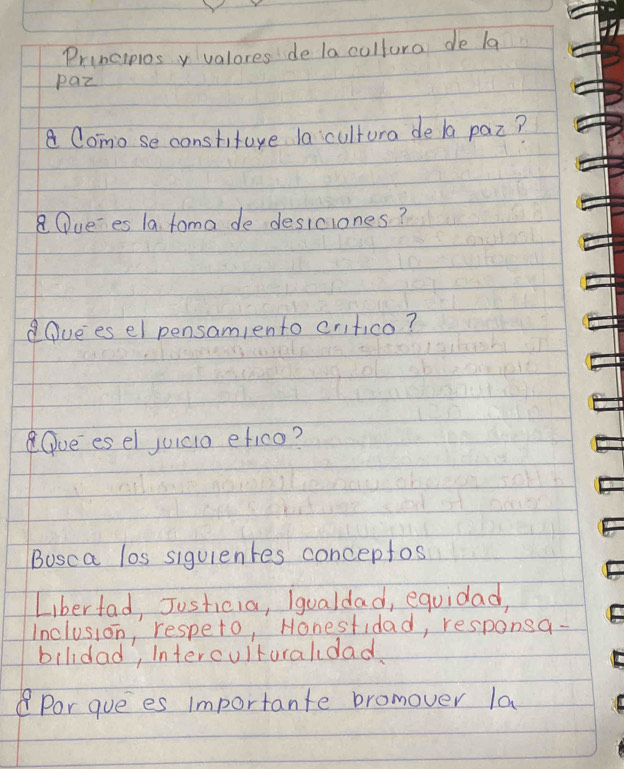 Principios y valores de la cultura de la
paz
¿Como se constituye la cultura de la paz?
¿Que es la toma de desiciones?
¿Que es el pensamiento critico?
¿Que es el juicio etico?
Busca los siguientes conceptos
Libertad, Justicia, Igualdad, equidad,
Inclusión, respeto, Honestidad, responsa-
bilidad, Interculturalidad.
¿Por que es importante promover la